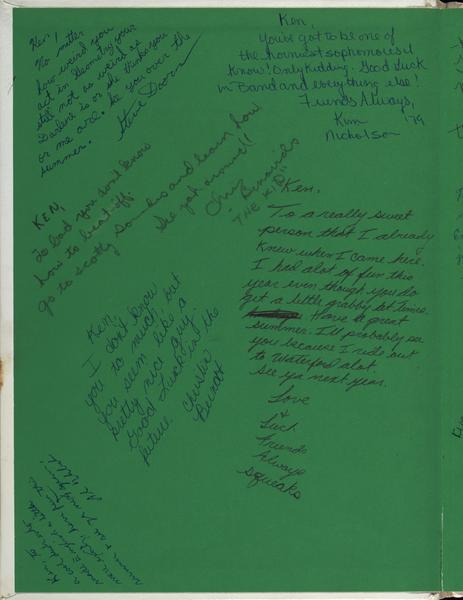 Ken!
No matter
how weird you
act in Geometry your
still not as weird as
Darlene is or she thinks you
or me are. See you over the
summer.
Steve Doorn
Ken,
You've got to be one of
the horniest sophomores I
know! Only Kidding. Good Luck
in Band and everything else!
Friends Always,
Kim '79
Nicholson
KEN,
To bad you don't know
how to beat off.
go to scotty and learn how
See ya around!!
Chris
"THE KID"
Ken,
To a really sweet
person that I already
knew when I came here.
I had alot of fun this
year even though you do
get a little grabby at times.
Have a great
summer. I'll probably see
you because I ride out
to Waterford alot.
See ya next year.
Love
+
Luck
Friends
Always
Squeaks
Ken,
I don't know
you to much, but
you seem like a
pretty nice guy.
Good Luck in the
future.
Charles